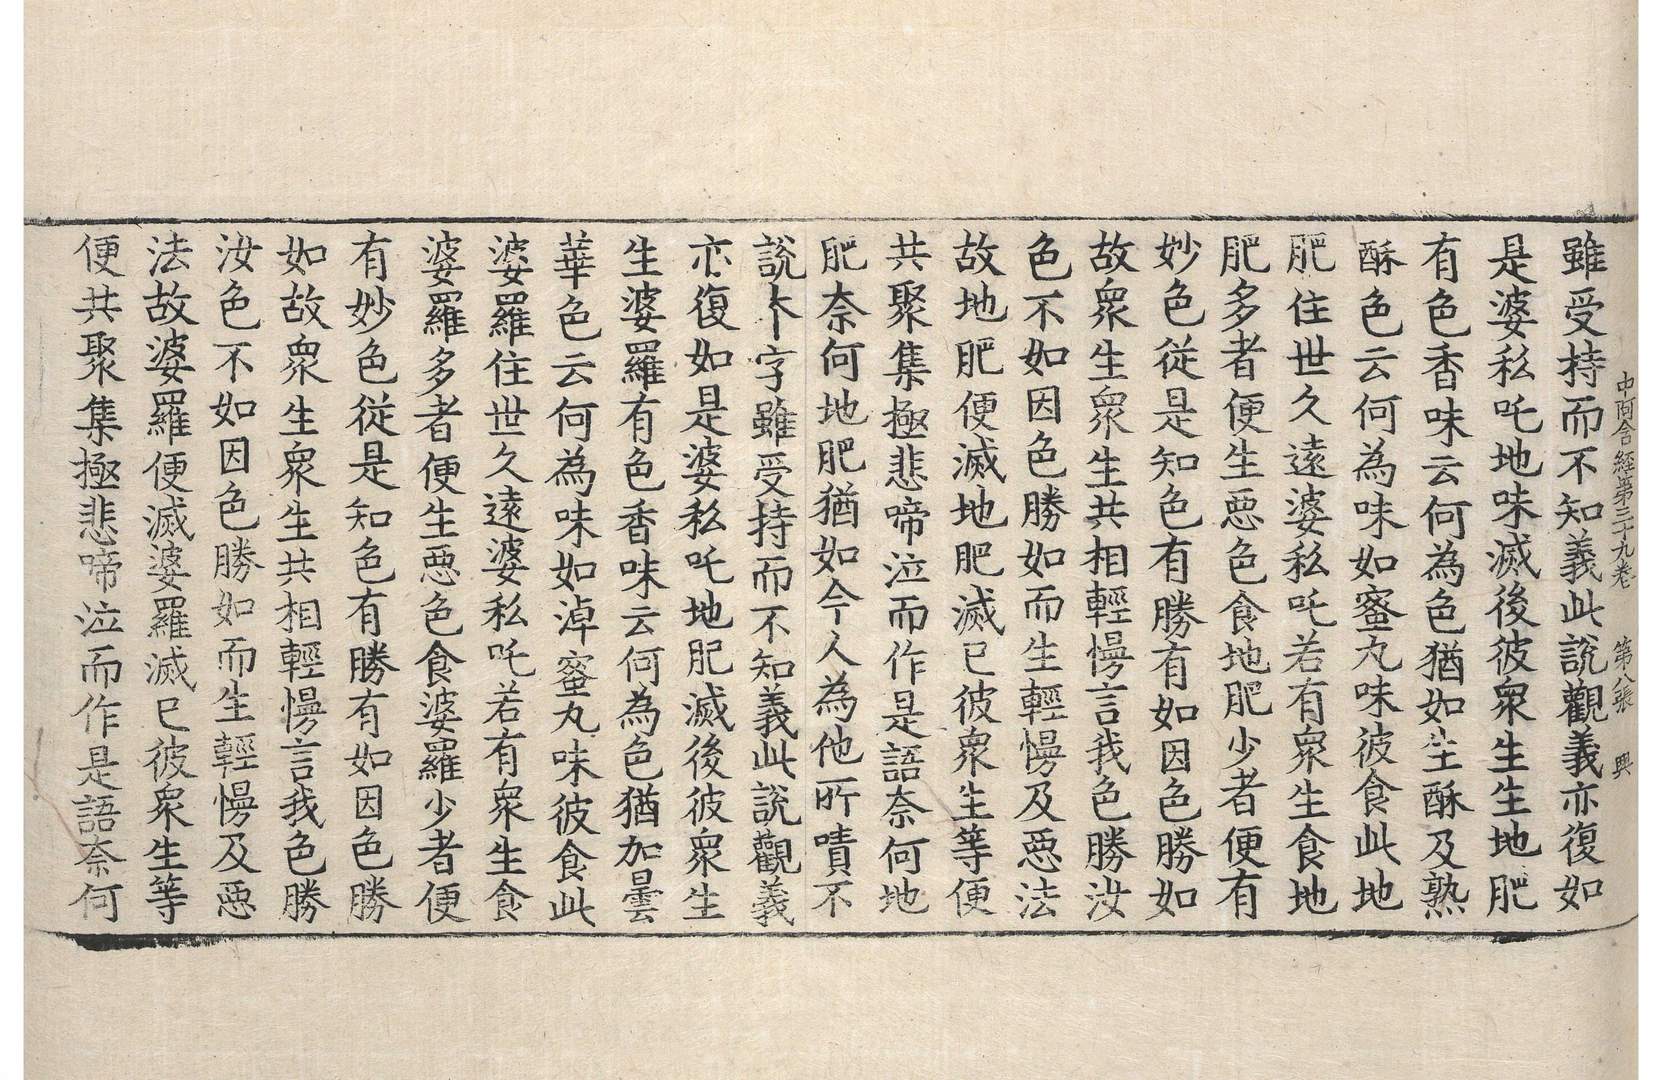 中阿含經第三十九卷　第八張　興
雖受持而不知義此說觀義亦復如
是婆私吒地味滅後彼衆生生地肥
有色香味云何為色猶如生酥及熟
酥色云何為味如蜜丸味彼食此地
肥住世久遠婆私吒若有衆生食地
肥多者便生惡色食地肥少者便有
妙色從是知色有勝有如因色勝如
故衆生衆生共相輕慢言我色勝汝
色不如因色勝如而生輕慢及惡法
故地肥便滅地肥滅已彼衆生等便
共聚集極悲啼泣而作是語奈何地
肥奈何地肥猶如今人為他所嘖不
說本字雖受持而不知義此說觀義
亦復如是婆私吒地肥滅後彼衆生
生婆羅有色香味云何為色猶加曇
華色云何為味如淖蜜丸味彼食此
婆羅住世久遠婆私吒若有衆生食
婆羅多者便生惡色食婆羅少者便
有妙色從是知色有勝有如因色勝
如故衆生衆生共相輕慢言我色勝
汝色不如因色勝如而生輕慢及惡
法故婆羅便滅婆羅滅已彼衆生等
便共聚集極悲啼泣而作是語奈何